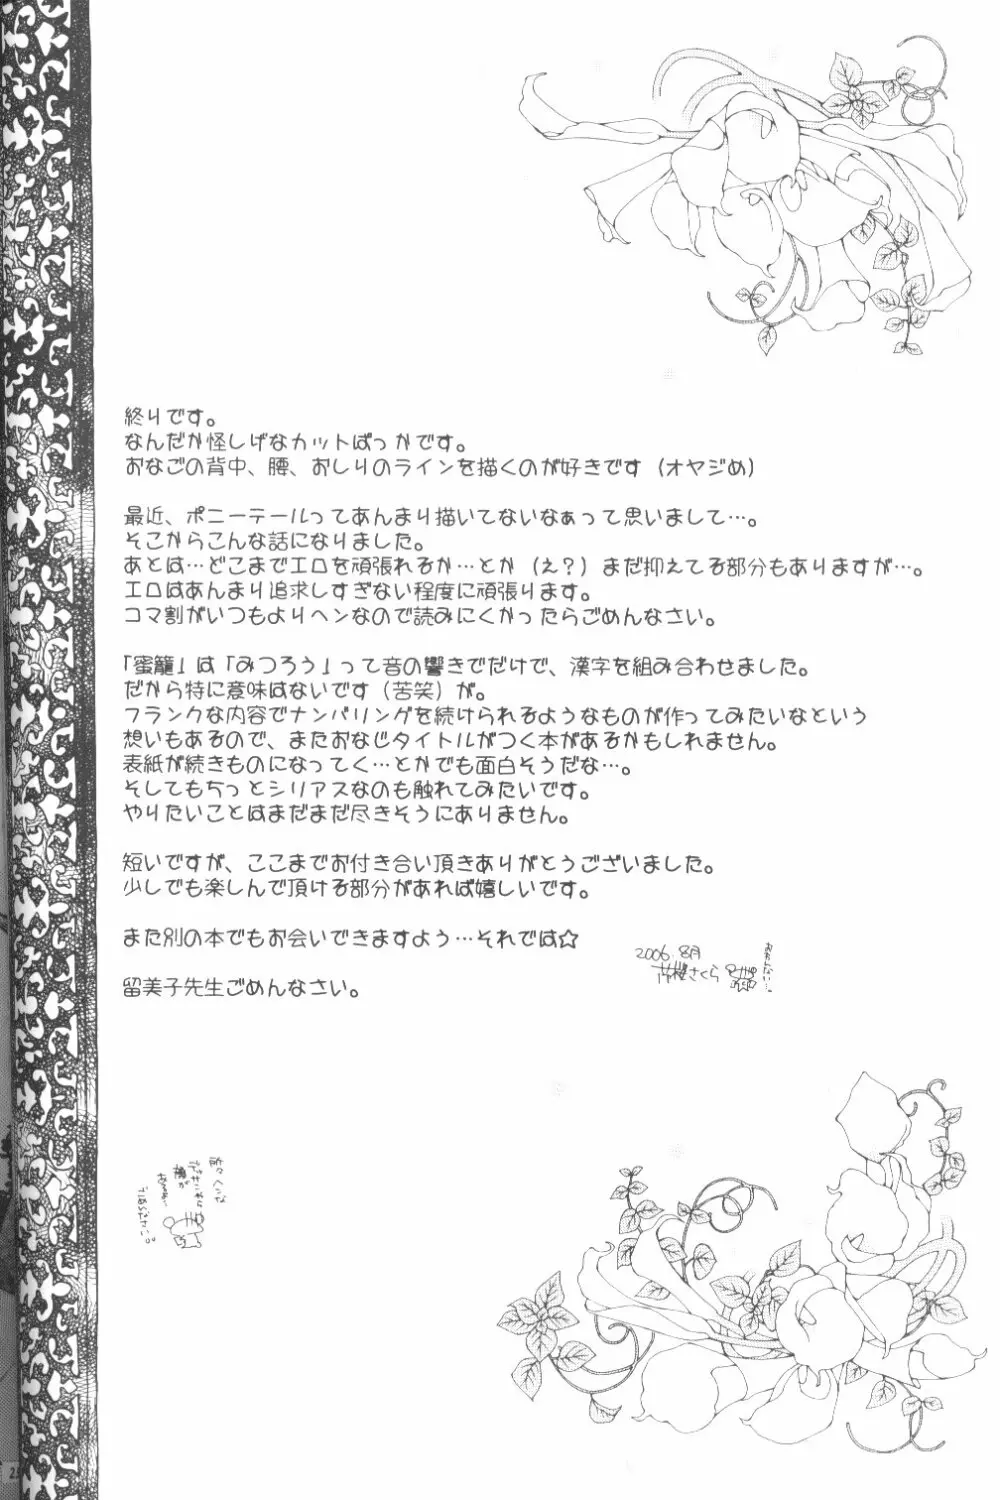 終りです。
なんだか怪しげなカットばっかです。
おなごの背中、腰、おしりのラインを描くのが好きです（オヤジめ）
最近、ポニーテールってあんまり描いてないなぁって思いまして…。
そこからこんな話になりました。
あとは…どこまでエロを頑張れるか…とか（え？）まだ抑えてる部分もありますが…。
エロはあんまり追求しすぎない程度に頑張ります。
コマ割がいつもよりヘンなので読みにくかったらごめんなさい。
「蜜籠」は「みつろう」って音の響きでだけで、漢字を組み合わせました。
だから特に意味はないです（苦笑）が。
フランクな内容でナンバリングを続けられるようなものが作ってみたいなという
想いもあるので、またおなじタイトルがつく本があるかもしれません。
表紙が続きものになってく…とかでも面白そうだな…。
そしてもちっとシリアスなのも触れてみたいです。
やりたいことはまだまだ尽きそうにありません。
短いですが、ここまでお付き合い頂きありがとうございました。
少しでも楽しんで頂ける部分があれば嬉しいです。
また別の本でもお会いできますよう…それでは☆
2006.8月
さくら
留美子先生ごめんなさい。
ごめんなさい。